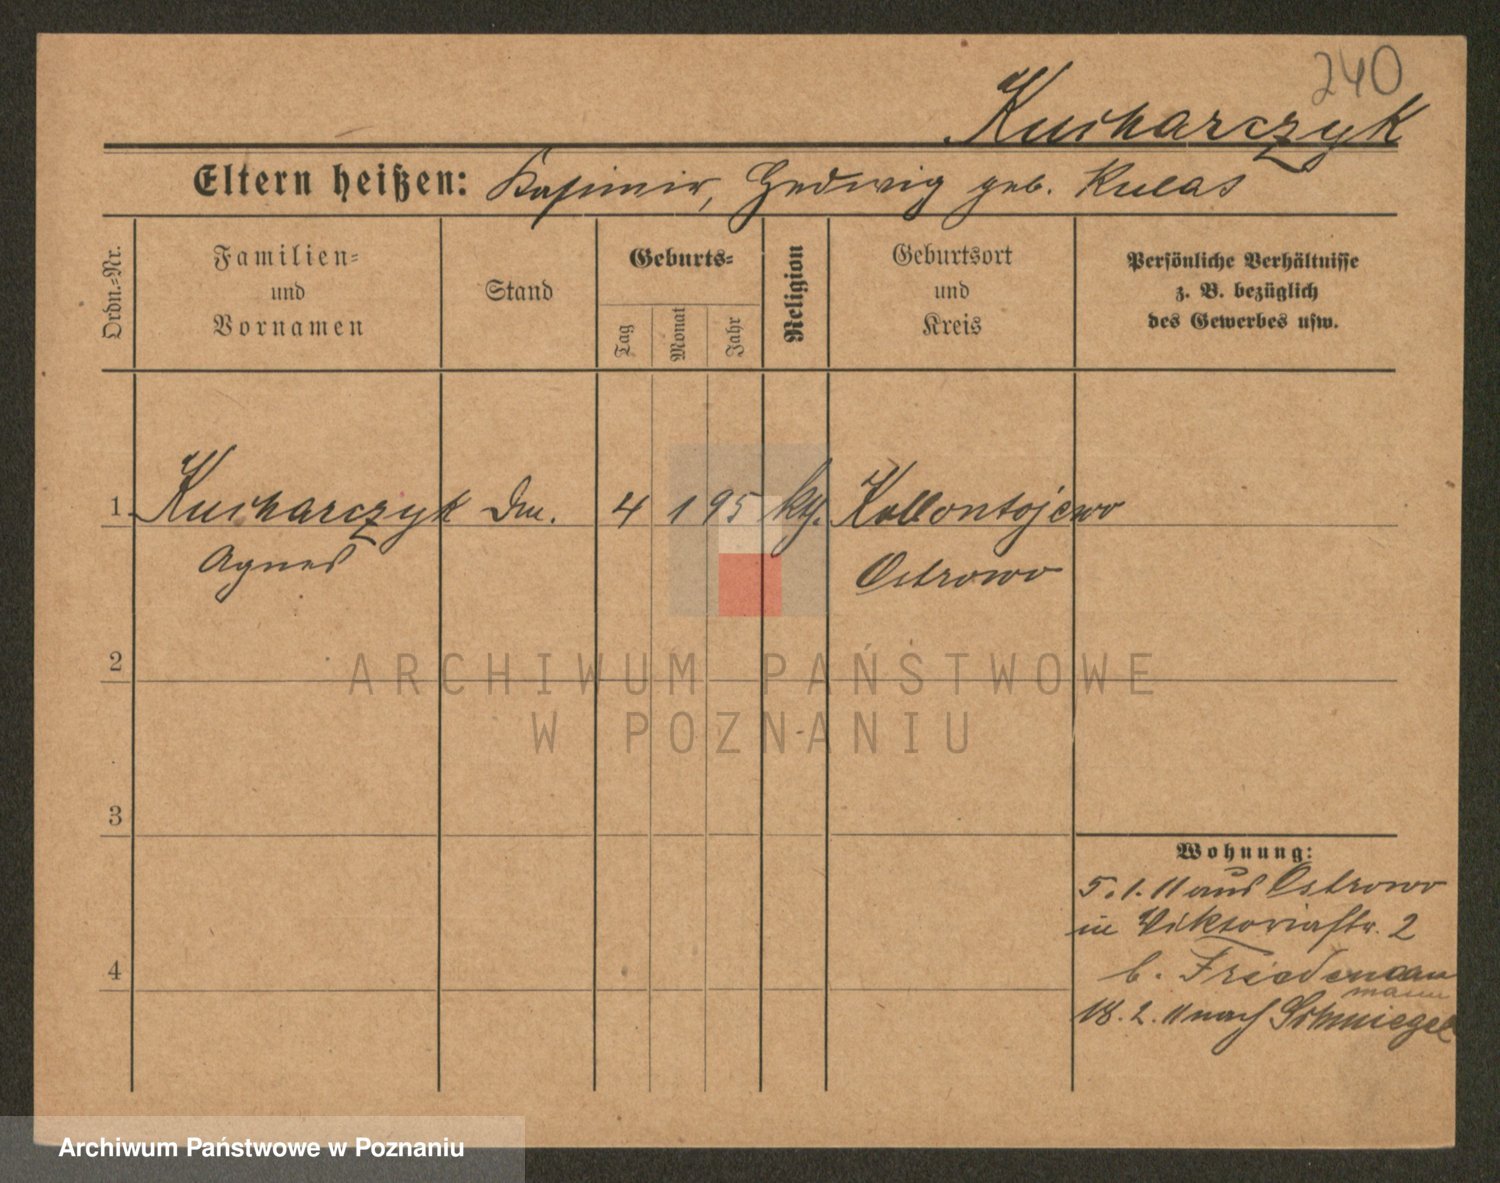 240
Kucharczyk
Eltern heißen: Kasimir, Hedwig geb. Kulas
Ordn.-Nr.
Familien-
und
Vornamen
Stand
Geburts-
Tag
Monat
Jahr
Religion
Geburtsort
und
Kreis
Persönliche Verhältnisse
z. B. bezüglich
des Gewerbes usw.
1 Kucharczyk Dm. 4 1 95 kth. Kollontajewo
Agnes Ostrowo
2
ARCHIWUM PAŃSTWOWE
W POZNANIU
3
Wohnung:
5.1.11 aus Ostrowo
in Viktoriastr. 2
4
b. Friedemann
mann
18.2.11 nach Schmiegel
Archiwum Państwowe w Poznaniu